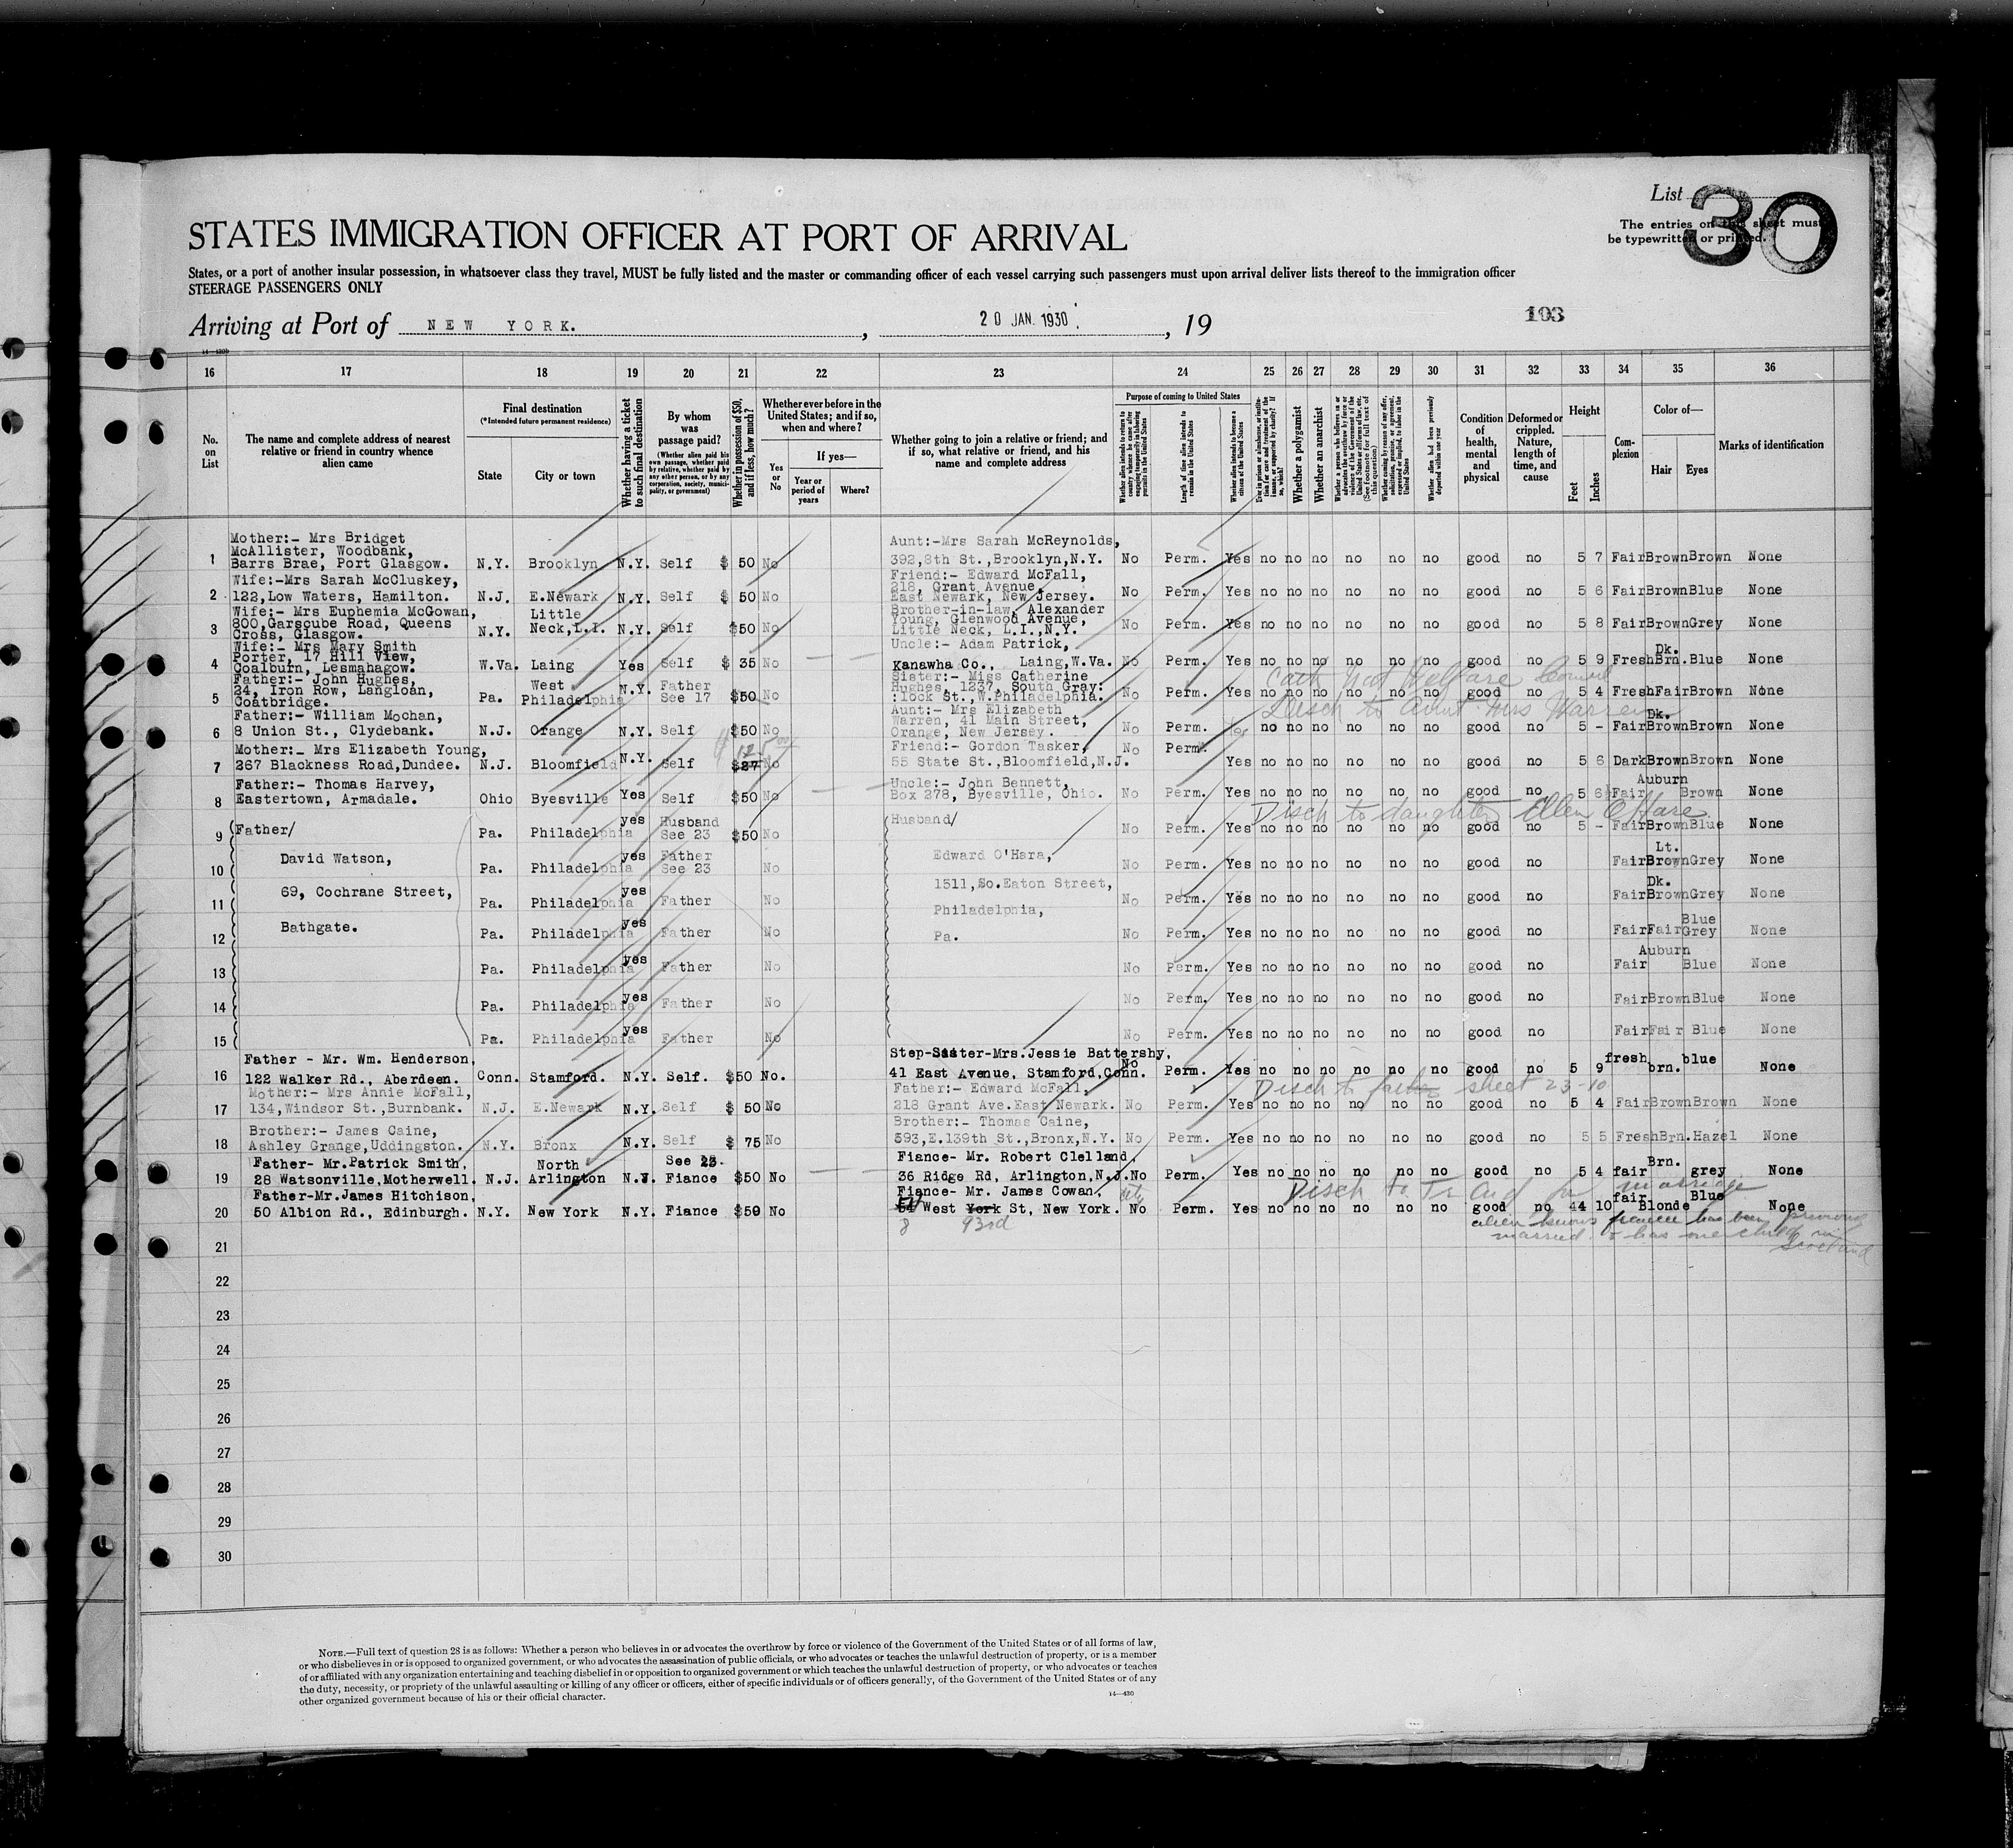 List 30
The entries on this sheet must
be typewritten or printed.
STATES IMMIGRATION OFFICER AT PORT OF ARRIVAL
States, or a port of another insular possession, in whatsoever class they travel, MUST be fully listed and the master or commanding officer of each vessel carrying such passengers must upon arrival deliver lists thereof to the immigration officer
STEERAGE PASSENGERS ONLY
Arriving at Port of NEW YORK. , 20 JAN. 1930 , 19 103
16 17 18 19 20 21 22 23 24 25 26 27 28 29 30 31 32 33 34 35 36
No. on List
The name and complete address of nearest relative or friend in country whence alien came
Final destination
(*Intended future permanent residence)
State
City or town
Whether having a ticket to such final destination
By whom was passage paid?
(Whether alien paid his own passage, whether paid by relative, whether paid by any other person, or by any corporation, society, municipality, or government)
Whether in possession of $50, and if less, how much?
Whether ever before in the United States; and if so, when and where?
Yes or No
If yes—
Year or period of years
Where?
Whether going to join a relative or friend; and if so, what relative or friend, and his name and complete address
Purpose of coming to United States
Length of time alien intends to remain in the United States
Whether alien intends to become a citizen of the United States
Whether a polygamist
Whether an anarchist
Condition of health, mental and physical
Deformed or crippled. Nature, length of time, and cause
Height
Feet
Inches
Complexion
Color of—
Hair
Eyes
Marks of identification
1 Mother:- Mrs Bridget McAllister, Woodbank, Barrs Brae, Port Glasgow. N.Y. Brooklyn N.Y. Self $ 50 No Aunt:-Mrs Sarah McReynolds, 392,8th St.,Brooklyn,N.Y. No Perm. Yes no no no no no no good no 5 7 Fair Brown Brown None
2 Wife:-Mrs Sarah McCluskey, 122,Low Waters, Hamilton. N.J. E.Newark N.Y. Self $ 50 No Friend:- Edward McFall, 218, Grant Avenue, East Newark, New Jersey. No Perm. Yes no no no no no no good no 5 6 Fair Brown Blue None
3 Wife:- Mrs Euphemia McGowan, 800,Garscube Road, Queens Cross, Glasgow. N.Y. Little Neck,L.I. N.Y. Self $50 No Brother-in-law, Alexander Young, Glenwood Avenue, Little Neck, L.I.,N.Y. No Perm. Yes no no no no no no good no 5 8 Fair Brown Grey None
4 Wife:- Mrs Mary Smith Porter, 17 Hill View, Coalburn, Lesmahagow. W.Va. Laing Yes Self $ 35 No Uncle:- Adam Patrick, Kanawha Co., Laing,W.Va. No Perm. Yes no no no no no no good no 5 9 Fresh Dk. Brn. Blue None
5 Father:- John Hughes, 24, Iron Row, Langloan, Coatbridge. Pa. West Philadelphia N.Y. Father See 17 $50 No Sister:- Miss Catherine Hughes, 1237, South Gray: :lock St., W.Philadelphia. No Perm. Yes no no no no no no good no 5 4 Fresh Fair Brown None
Cath Nat Welfare Council
Disch to Aunt Mrs Warren
6 Father:- William Mochan, 8 Union St., Clydebank. N.J. Orange N.Y. Self $50 No Aunt:- Mrs Elizabeth Warren, 41 Main Street, Orange, New Jersey. No Perm. no no no no no no good no 5 - Fair Dk. Brown Brown None
7 Mother:- Mrs Elizabeth Young, 367 Blackness Road,Dundee. N.J. Bloomfield N.Y. Self $27 No Friend:- Gordon Tasker, 55 State St.,Bloomfield,N.J. No Perm. Yes no no no no no no good no 5 6 Dark Brown Brown None
8 Father:- Thomas Harvey, Eastertown, Armadale. Ohio Byesville Yes Self $50 No Uncle:- John Bennett, Box 278, Byesville, Ohio. No Perm. Yes no no no no no no good no 5 6½ Fair Auburn Brown None
Disch to daughter Ellen O'Hare
9 Father/ Pa. Philadelphia yes Husband See 23 $50 No Husband/ No Perm. Yes no no no no no no good no 5 - Fair Brown Blue None
10 David Watson, Pa. Philadelphia yes Father See 23 No Edward O'Hara, No Perm. Yes no no no no no no good no Fair Lt. Brown Grey None
11 69, Cochrane Street, Pa. Philadelphia yes Father No 1511,So.Eaton Street, No Perm. Yes no no no no no no good no Fair Dk. Brown Grey None
12 Bathgate. Pa. Philadelphia yes Father No Philadelphia, Pa. No Perm. Yes no no no no no no good no Fair Fair Blue Grey None
13 Pa. Philadelphia yes Father No No Perm. Yes no no no no no no good no Fair Auburn Blue None
14 Pa. Philadelphia yes Father No No Perm. Yes no no no no no no good no Fair Brown Blue None
15 Pa. Philadelphia yes Father No No Perm. Yes no no no no no no good no Fair Fair Blue None
16 Father - Mr. Wm. Henderson, 122 Walker Rd., Aberdeen. Conn. Stamford. N.Y. Self. $50 No. Step-Sister-Mrs.Jessie Battershy, 41 East Avenue, Stamford,Conn. No Perm. Yes no no no no no no good no 5 9 fresh brn. blue None
Disch to father sheet 23-10
17 Mother:- Mrs Annie McFall, 134,Windsor St.,Burnbank. N.J. E.Newark N.Y. Self $ 50 No Father:- Edward McFall, 218 Grant Ave.East Newark. No Perm. Yes no no no no no no good no 5 4 Fair Brown Brown None
18 Brother:- James Caine, Ashley Grange,Uddingston. N.Y. Bronx N.Y. Self $ 75 No Brother:- Thomas Caine, 593,E.139th St.,Bronx,N.Y. No Perm. Yes no no no no no no good no 5 5 Fresh Brn. Hazel None
19 Father- Mr.Patrick Smith, 28 Watsonville,Motherwell. N.J. North Arlington N.J. See 23. Fiance $50 No Fiance- Mr. Robert Clelland, 36 Ridge Rd, Arlington,N.J. No Perm. Yes no no no no no no good no 5 4 fair Brn. grey None
Disch to Tr Aid for marriage
20 Father-Mr.James Hitchison, 50 Albion Rd., Edinburgh. N.Y. New York N.Y. Fiance $50 No Fiance- Mr. James Cowan, West York St, New York. No Perm. Yes no no no no no no good no 4 10 fair Blonde Blue None
8 93rd
alien knows fiance has been previously
married & has one child in
Scotland
21
22
23
24
25
26
27
28
29
30
NOTE.—Full text of question 28 is as follows: Whether a person who believes in or advocates the overthrow by force or violence of the Government of the United States or of all forms of law,
or who disbelieves in or is opposed to organized government, or who advocates the assassination of public officials, or who advocates or teaches the unlawful destruction of property, or is a member
of or affiliated with any organization entertaining and teaching disbelief in or opposition to organized government or which teaches the unlawful destruction of property, or who advocates or teaches
the duty, necessity, or propriety of the unlawful assaulting or killing of any officer or officers, either of specific individuals or of officers generally, of the Government of the United States or of any
other organized government because of his or their official character.
14—430